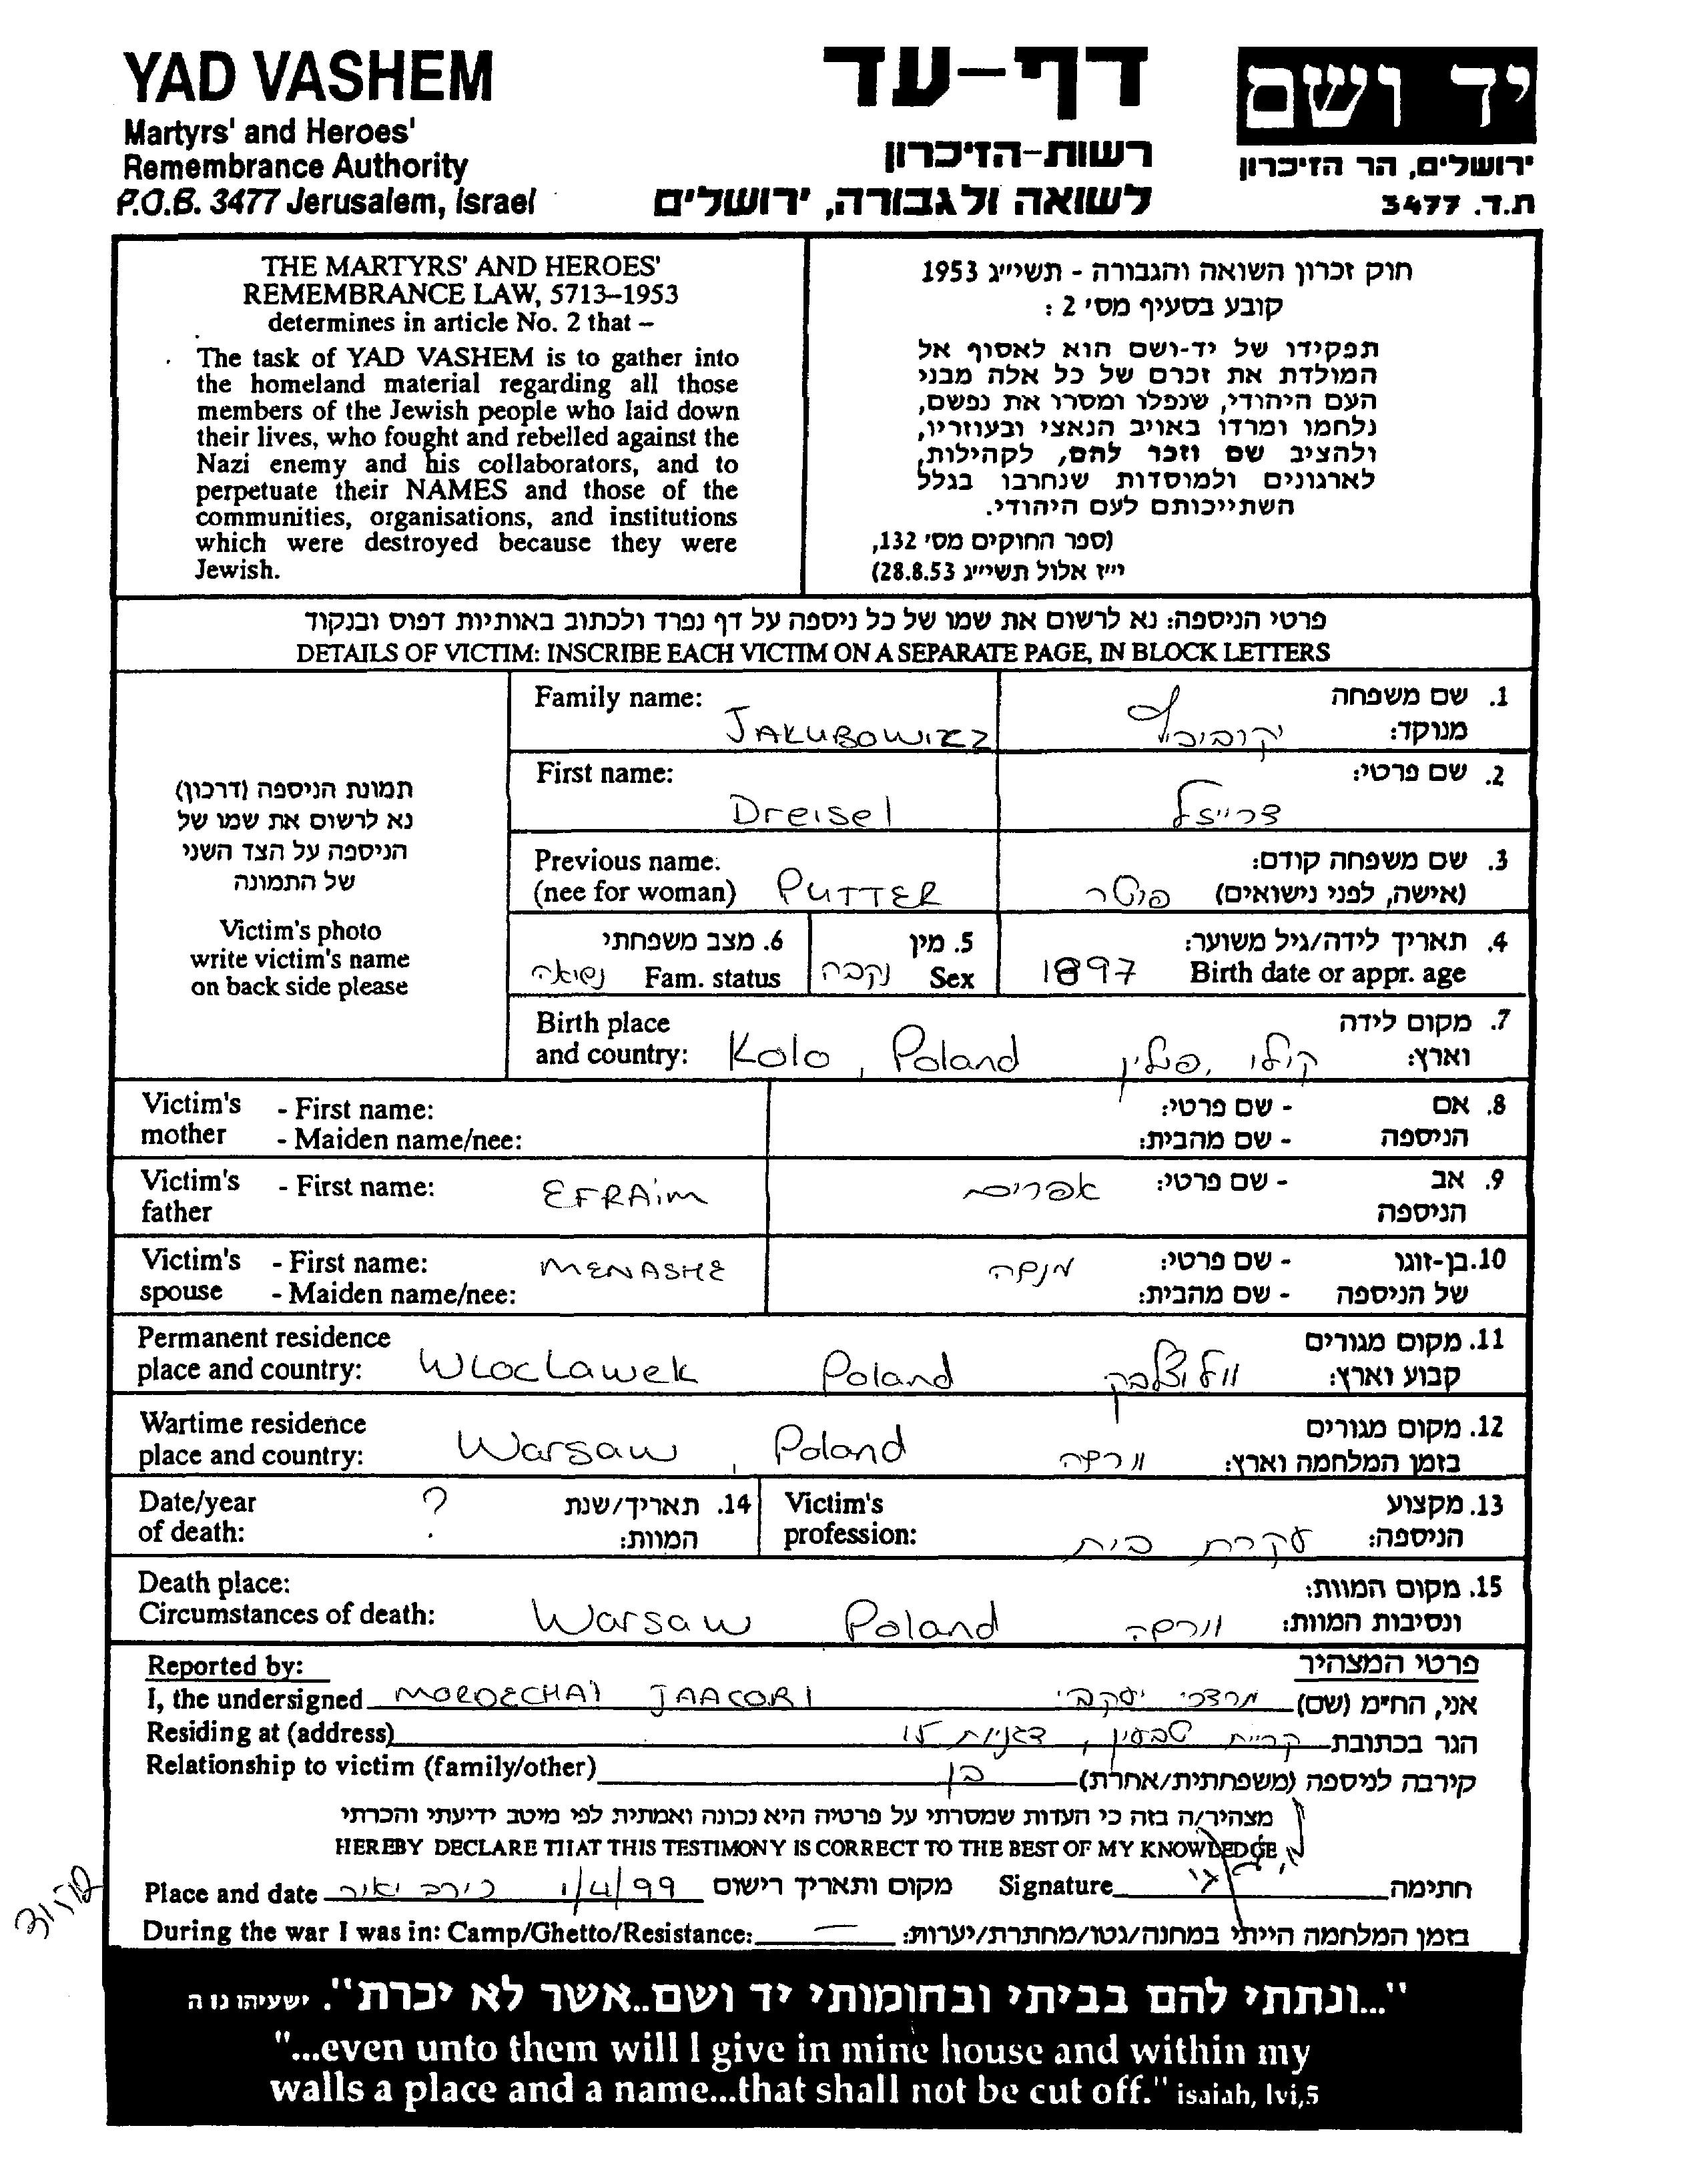 YAD VASHEM
Martyrs' and Heroes'
Remembrance Authority
P.O.B. 3477 Jerusalem, Israel
דף-עד
רשות-הזיכרון
לשואה ולגבורה, ירושלים
יד ושם
ירושלים, הר הזיכרון
ת.ד. 3477
THE MARTYRS' AND HEROES'
REMEMBRANCE LAW, 5713–1953
determines in article No. 2 that –
The task of YAD VASHEM is to gather into
the homeland material regarding all those
members of the Jewish people who laid down
their lives, who fought and rebelled against the
Nazi enemy and his collaborators, and to
perpetuate their NAMES and those of the
communities, organisations, and institutions
which were destroyed because they were
Jewish.
חוק זכרון השואה והגבורה - תשי״ג 1953
קובע בסעיף מס׳ 2 :
תפקידו של יד-ושם הוא לאסוף אל
המולדת את זכרם של כל אלה מבני
העם היהודי, שנפלו ומסרו את נפשם,
נלחמו ומרדו באויב הנאצי ובעוזריו,
ולהציב שם וזכר להם, לקהילות,
לארגונים ולמוסדות שנחרבו בגלל
השתייכותם לעם היהודי.
(ספר החוקים מס׳ 132,
י״ז אלול תשי״ג 28.8.53)
פרטי הניספה: נא לרשום את שמו של כל ניספה על דף נפרד ולכתוב באותיות דפוס ובנקוד
DETAILS OF VICTIM: INSCRIBE EACH VICTIM ON A SEPARATE PAGE, IN BLOCK LETTERS
תמונת הניספה (דרכון)
נא לרשום את שמו של
הניספה על הצד השני
של התמונה
Victim's photo
write victim's name
on back side please
Family name: JAKUBOWICZ
1. שם משפחה
מנוקד: יקוביביץ
First name: Dreisel
2. שם פרטי: דרייזל
Previous name. PUTTER
(nee for woman)
3. שם משפחה קודם:
(אישה, לפני נישואים) פוטר
6. מצב משפחתי
Fam. status נשואה
5. מין
Sex נקבה
4. תאריך לידה/גיל משוער:
Birth date or appr. age 1897
Birth place
and country: Kolo, Poland
7. מקום לידה
וארץ: קולו, פולין
Victim's - First name:
mother - Maiden name/nee:
8. אם - שם פרטי:
הניספה - שם מהבית:
Victim's - First name: EFRAiM
father
9. אב - שם פרטי: אפרים
הניספה
Victim's - First name: MENASHE
spouse - Maiden name/nee:
10. בן-זוגו - שם פרטי: מנשה
של הניספה - שם מהבית:
Permanent residence
place and country: WLOCLAWEK Poland
11. מקום מגורים
קבוע וארץ:
Wartime residence
place and country: Warsaw, Poland
12. מקום מגורים
בזמן המלחמה וארץ: וורשה
Date/year ?
of death:
14. תאריך/שנת
המוות:
Victim's
profession:
13. מקצוע
הניספה: עקרת בית
Death place:
Circumstances of death: Warsaw Poland
15. מקום המוות:
ונסיבות המוות: וורשה
Reported by:
פרטי המצהיר
I, the undersigned MORDECHAI JAACORI
אני, החימ (שם) מרדכי יעקבי
Residing at (address)
הגר בכתובת קריית טבעון, דגניות 15
Relationship to victim (family/other)
קירבה לניספה (משפחתית/אחרת) בן
מצהיר/ה בזה כי העדות שמסרתי על פרטיה היא נכונה ואמתית לפי מיטב ידיעתי והכרתי
HEREBY DECLARE THAT THIS TESTIMONY IS CORRECT TO THE BEST OF MY KNOWLEDGE
Place and date 1/4/99 מקום ותאריך רישום
Signature חתימה
During the war I was in: Camp/Ghetto/Resistance: —
בזמן המלחמה הייתי במחנה/גטו/מחתרת/יערות:
"...ונתתי להם בביתי ובחומותי יד ושם..אשר לא יכרת". ישעיהו נו ה
"...even unto them will I give in mine house and within my
walls a place and a name...that shall not be cut off." isaiah, lvi,5